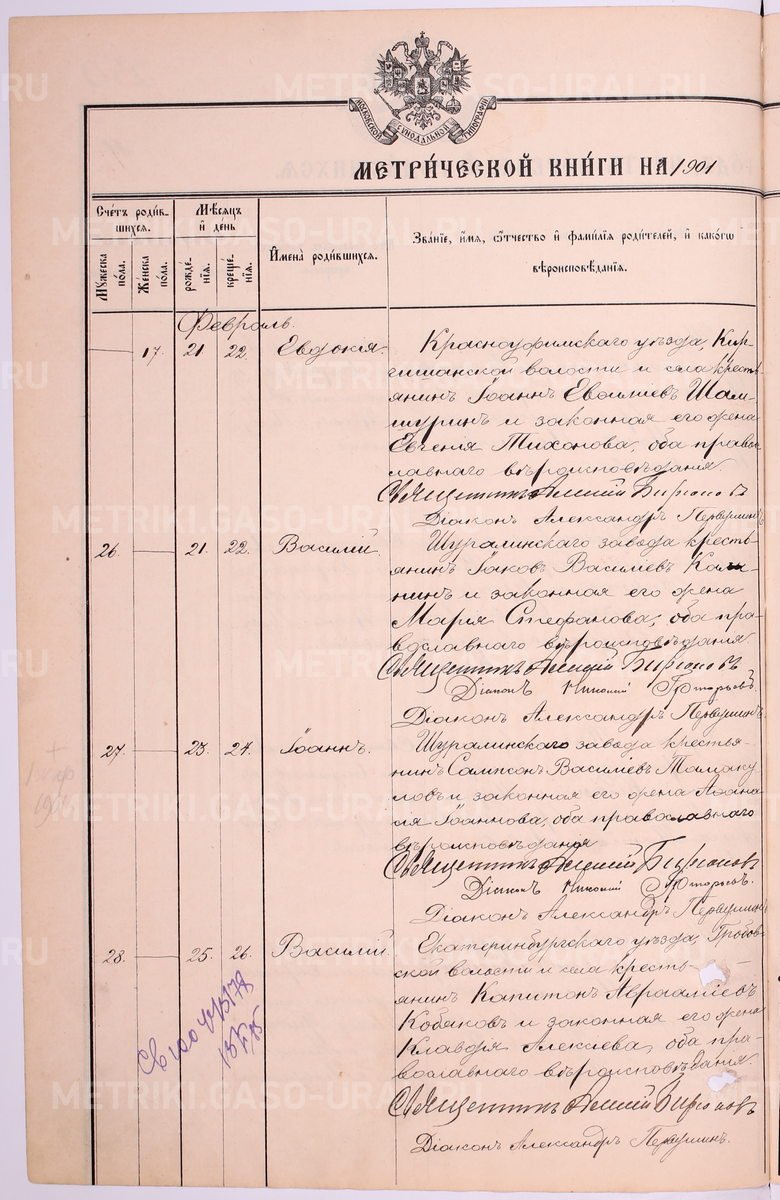 МОСКОВСКОЙ СѴНОДАЛЬНОЙ ТИПОГРАФІИ
МЕТРИ́ЧЕСКОЙ КНИ́ГИ НА 1901
Сче́тъ роди́вшихся.
Мѣ́сяцъ и҆ де́нь
И҆мена̀ роди́вшихся.
Зва́нїе, и҆́мѧ, ѻ҆́тчество и҆ фами́лїѧ роди́телей, и҆ како́гѡ
вѣроисповѣ́данїѧ.
Мꙋ́жеска по́ла.
Же́нска по́ла.
рожде́нїѧ.
креще́нїѧ.
Февраль.
17. 21 22. Евдокія.
Красноуфимскаго уѣзда, Кир-
гишанской волости и села кресть-
янинъ Іоаннъ Евсиліевъ Шам-
шуринъ и законная его жена
Евгенія Тихонова, оба право-
славнаго вѣроисповѣданія.
Священникъ Алексій Бирюковъ
Діаконъ Александръ Первушинъ
26. 21. 22. Василій.
Шуралинскаго завода кресть-
янинъ Іаковъ Василіевъ Кали-
нинъ и законная его жена
Марія Стефанова, оба пра-
вославнаго вѣроисповѣданія.
Священникъ Алексій Бирюковъ
Діаконъ Николай
Діаконъ Александръ Первушинъ.
27. 23. 24. Іоаннъ.
Шуралинскаго завода крестья-
нинъ Сампсонъ Василіевъ Тамаку-
ловъ и законная его жена
Іоаннова, оба православнаго
вѣроисповѣданія
Священникъ Алексій Бирюковъ
Діаконъ Николай
Діаконъ Александръ Первушинъ
28. 25. 26. Василій.
Екатеринбургскаго уѣзда, Гробов-
ской волости и села кресть-
янинъ Капитонъ Авраамієвъ
Кобяковъ и законная его жена
Клавдія Алексіева, оба пра-
вославнаго вѣроисповѣданія.
Священникъ Алексій Бирюковъ
Діаконъ Александръ Первушинъ.
METRIKI.GASO-URAL.RU